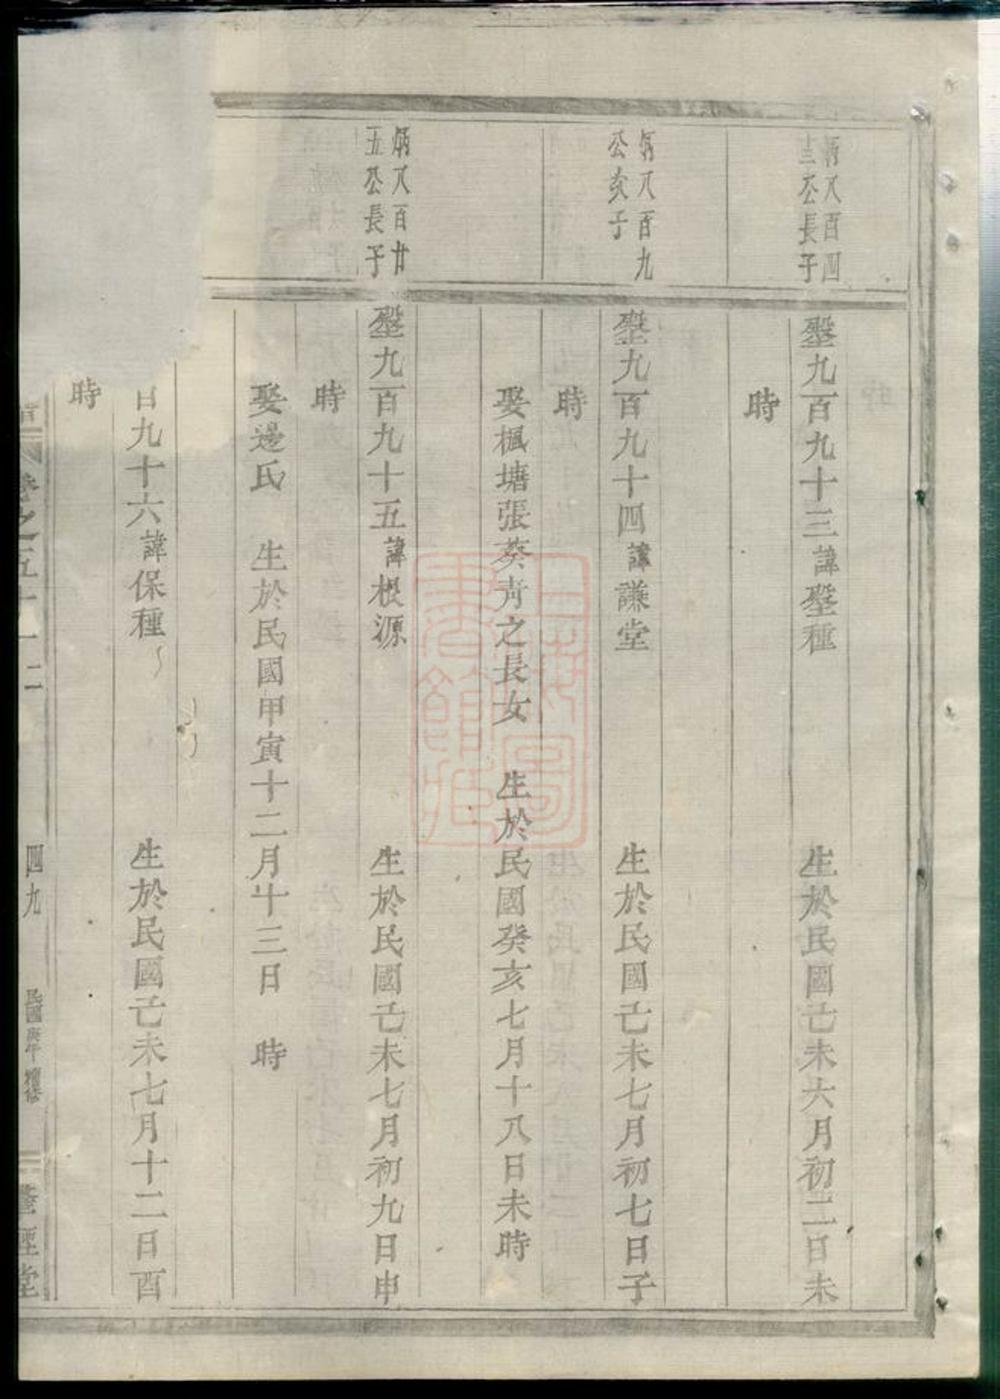 炳八百四
十三公長子
塈九百九十三諱塈種 生於民國己未六月初二日未
時
炳八百九
公次子
塈九百九十四諱謙堂 生於民國己未七月初七日子
時
娶楓塘張葵靑之長女 生於民國癸亥七月十八日未時
炳八百廿
五公長子
塈九百九十五諱根源 生於民國己未七月初九日申
時
娶邊氏 生於民國甲寅十二月十三日 時
百九十六諱保種 生於民國己未七月十二日酉
時
卷之五十一 四九 民國庚午續修 經堂
上海圖書館藏